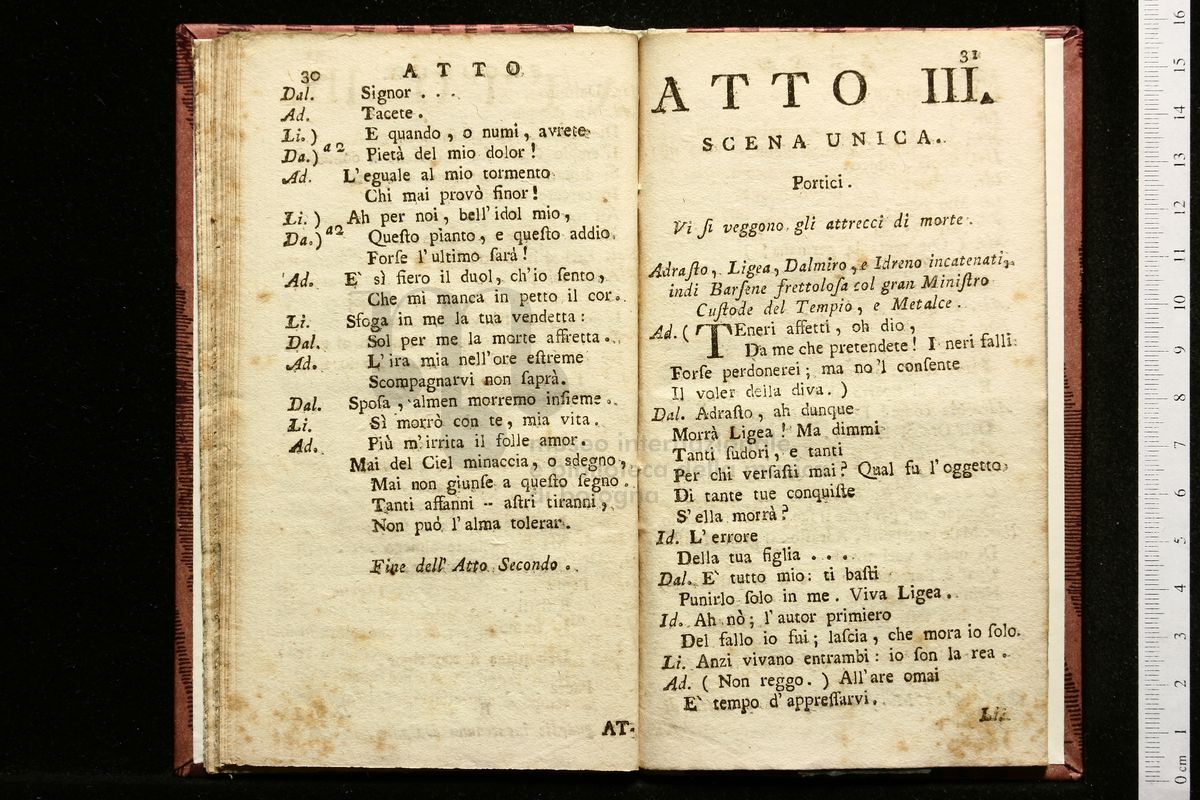 30
ATTO
Dal. Signor . . .
Ad. Tacete.
Li.) E quando, o numi, avrete
Da.) a 2 Pietà del mio dolor!
Ad. L'eguale al mio tormento
Chi mai provò finor!
Li.) Ah per noi, bell'idol mio,
Da.) a 2 Queſto pianto, e queſto addio
Forſe l'ultimo ſarà!
Ad. E` sì fiero il duol, ch'io ſento,
Che mi manca in petto il cor.
Li. Sfoga in me la tua vendetta:
Dal. Sol per me la morte affretta.
Ad. L'ira mia nell'ore eſtreme
Scompagnarvi non ſaprà.
Dal. Spoſa, almen morremo inſieme.
Li. Sì morrò con te, mia vita.
Ad. Più m'irrita il folle amor.
Mai del Ciel minaccia, o sdegno,
Mai non giunſe a queſto ſegno.
Tanti affanni -- aſtri tiranni,
Non può l'alma tolerar.
Fine dell' Atto Secondo.
AT-
31
ATTO III.
SCENA UNICA.
Portici.
Vi ſi veggono gli attrecci di morte.
Adraſto, Ligea, Dalmiro, e Idreno incatenati,
indi Barſene frettoloſa col gran Miniſtro
Cuſtode del Tempio, e Metalce.
Ad. ( TEneri affetti, oh dio,
Da me che pretendete! I neri falli
Forſe perdonerei; ma no 'l conſente
Il voler della diva. )
Dal. Adraſto, ah dunque
Morrà Ligea! Ma dimmi
Tanti ſudori, e tanti
Per chi verſaſti mai? Qual fu l'oggetto
Di tante tue conquiſte
S'ella morrà?
Id. L'errore
Della tua figlia . . . .
Dal. E` tutto mio: ti baſti
Punirlo ſolo in me. Viva Ligea.
Id. Ah nò; l'autor primiero
Del fallo io fui; laſcia, che mora io ſolo.
Li. Anzi vivano entrambi: io ſon la rea.
Ad. ( Non reggo. ) All'are omai
E` tempo d'appreſſarvi.
museo internazionale
e biblioteca della musica
di bologna
0 cm 1 2 3 4 5 6 7 8 9 10 11 12 13 14 15 16